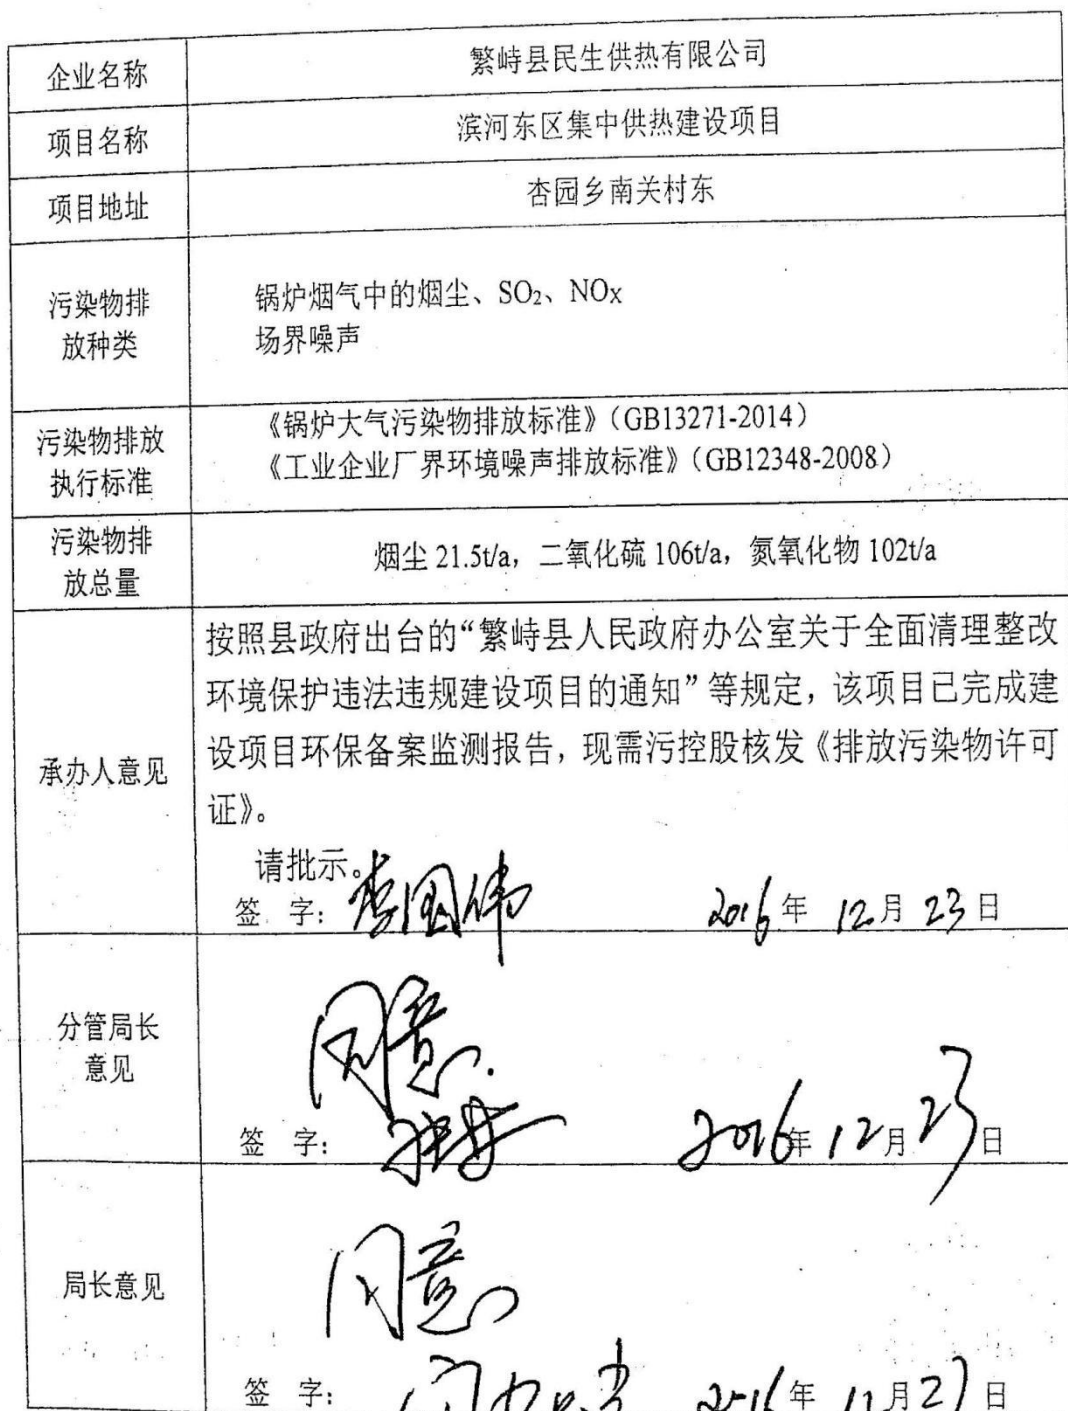 企业名称
繁峙县民生供热有限公司
项目名称
滨河东区集中供热建设项目
项目地址
杏园乡南关村东
污染物排
放种类
锅炉烟气中的烟尘、SO₂、NOx
场界噪声
污染物排放
执行标准
《锅炉大气污染物排放标准》（GB13271-2014）
《工业企业厂界环境噪声排放标准》（GB12348-2008）
污染物排
放总量
烟尘 21.5t/a，二氧化硫 106t/a，氮氧化物 102t/a
承办人意见
按照县政府出台的“繁峙县人民政府办公室关于全面清理整改
环境保护违法违规建设项目的通知”等规定，该项目已完成建
设项目环保备案监测报告，现需污控股核发《排放污染物许可
证》。
请批示。
签 字：李国伟 2016年 12月 23日
分管局长
意见
同意.
签 字： 2016年 12月 23日
局长意见
同意
签 字： 2016年 12月 27日